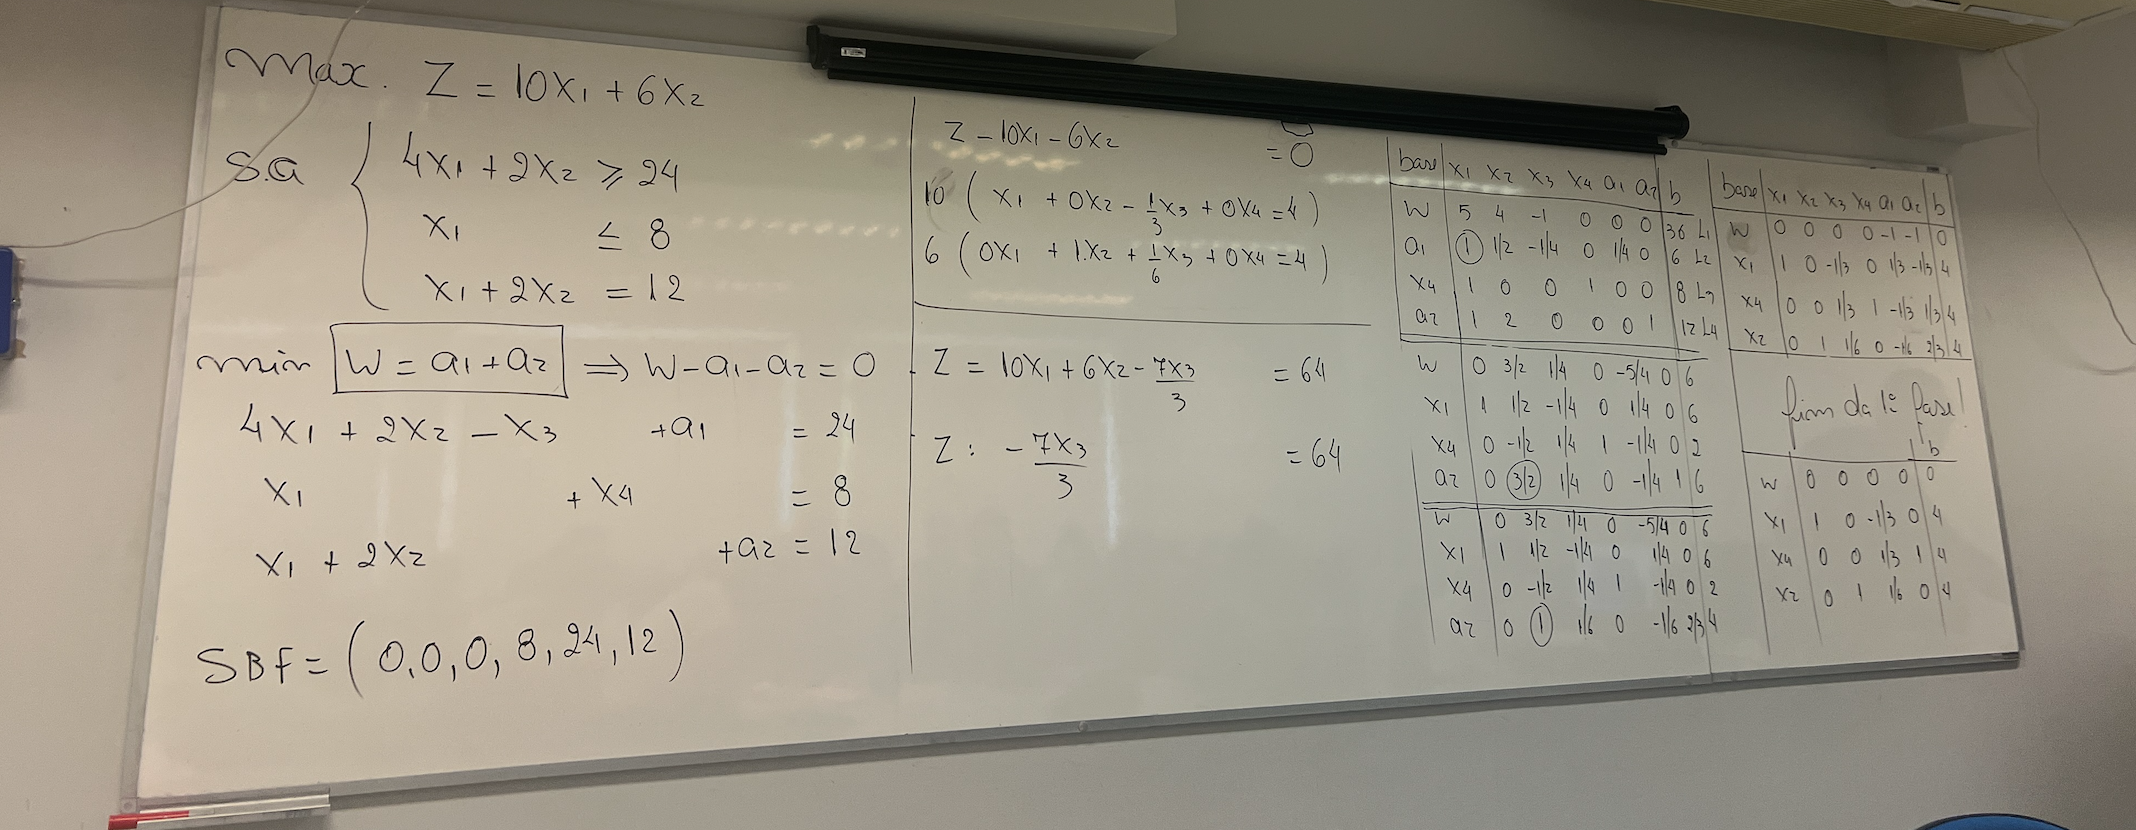 Max. Z = 10x1 + 6x2
S.a { 4x1 + 2x2 ≥ 24
x1 ≤ 8
x1 + 2x2 = 12
min W = a1 + a2 ⇒ W - a1 - a2 = 0
4x1 + 2x2 - x3 + a1 = 24
x1 + x4 = 8
x1 + 2x2 + a2 = 12
SBF = (0, 0, 0, 8, 24, 12)
Z - 10x1 - 6x2 = 0
10 ( x1 + 0x2 - 1/3 x3 + 0x4 = 4 )
6 ( 0x1 + 1.x2 + 1/6 x3 + 0x4 = 4 )
Z = 10x1 + 6x2 - 7x3/3 = 64
Z: - 7x3/3 = 64
base x1 x2 x3 x4 a1 a2 b
W 5 4 -1 0 0 0 36 L1
a1 1 1/2 -1/4 0 1/4 0 6 L2
x4 1 0 0 1 0 0 8 L3
a2 1 2 0 0 0 1 12 L4
W 0 3/2 1/4 0 -5/4 0 6
x1 1 1/2 -1/4 0 1/4 0 6
x4 0 -1/2 1/4 1 -1/4 0 2
a2 0 3/2 1/4 0 -1/4 1 6
W 0 3/2 1/4 0 -5/4 0 6
x1 1 1/2 -1/4 0 1/4 0 6
x4 0 -1/2 1/4 1 -1/4 0 2
a2 0 1 1/6 0 -1/6 2/3 4
base x1 x2 x3 x4 a1 a2 b
W 0 0 0 0 -1 -1 0
x1 1 0 -1/3 0 1/3 -1/3 4
x4 0 0 1/3 1 -1/3 1/3 4
x2 0 1 1/6 0 -1/6 2/3 4
fim da 1ª fase!
b
W 0 0 0 0 0
x1 1 0 -1/3 0 4
x4 0 0 1/3 1 4
x2 0 1 1/6 0 4